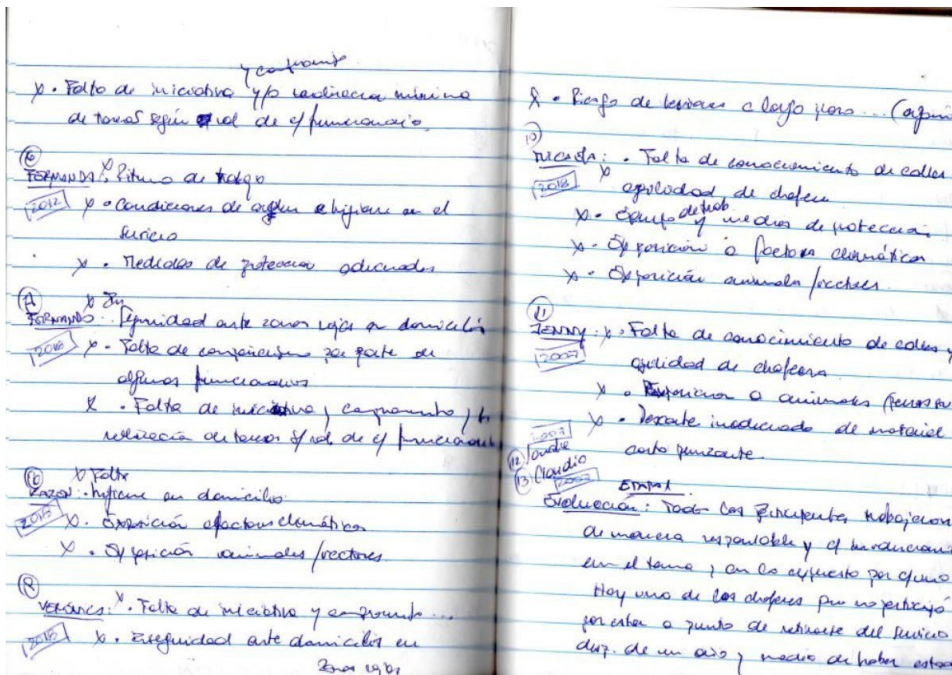 y compromiso
x • Falta de iniciativa y/o realización mínima
de tareas según rol de c/ funcionario.
6
FERNANDA: x Ritmo de trabajo
2012 x • Condiciones de orden e higiene en el
servicio
x • Medidas de protección adecuadas
7 x In
FERNANDO: seguridad ante zonas rojas en domicilios
2016 x • Falta de compañerismo por parte de
algunos funcionarios
x • Falta de iniciativa y compromiso y la
realización de tareas s/ rol de c/ funcionario
x Falta
• higiene en domicilio
2015 x • Exposición a factores climáticos
x • Exposición animales/vectores
VERÓNICA: x • Falta de iniciativa y compromiso...
2015 x • Inseguridad ante domicilios en
zonas rojas
x • Riesgo de lesiones a largo plazo...
10
MICAELA: • Falta de conocimiento de calles
2018 x agilidad de chofers
x • Equipo de trab. y medios de protección
x • Exposición a factores climáticos
x • Exposición animales/vectores.
11
JENNY: x • Falta de conocimiento de calles y
2007 agilidad de choferes.
x • Exposición a animales
x • Descarte inadecuado de material
2007 corto punzante.
12
13 Claudio
2002 ETAPA 1
Evaluación: Todos los participantes trabajaron
de manera responsable y
en el tema, en lo expuesto por c/uno
Hay uno de los choferes que no participó
por estar a punto de retirarse del servicio
desp. de un año y medio de haber